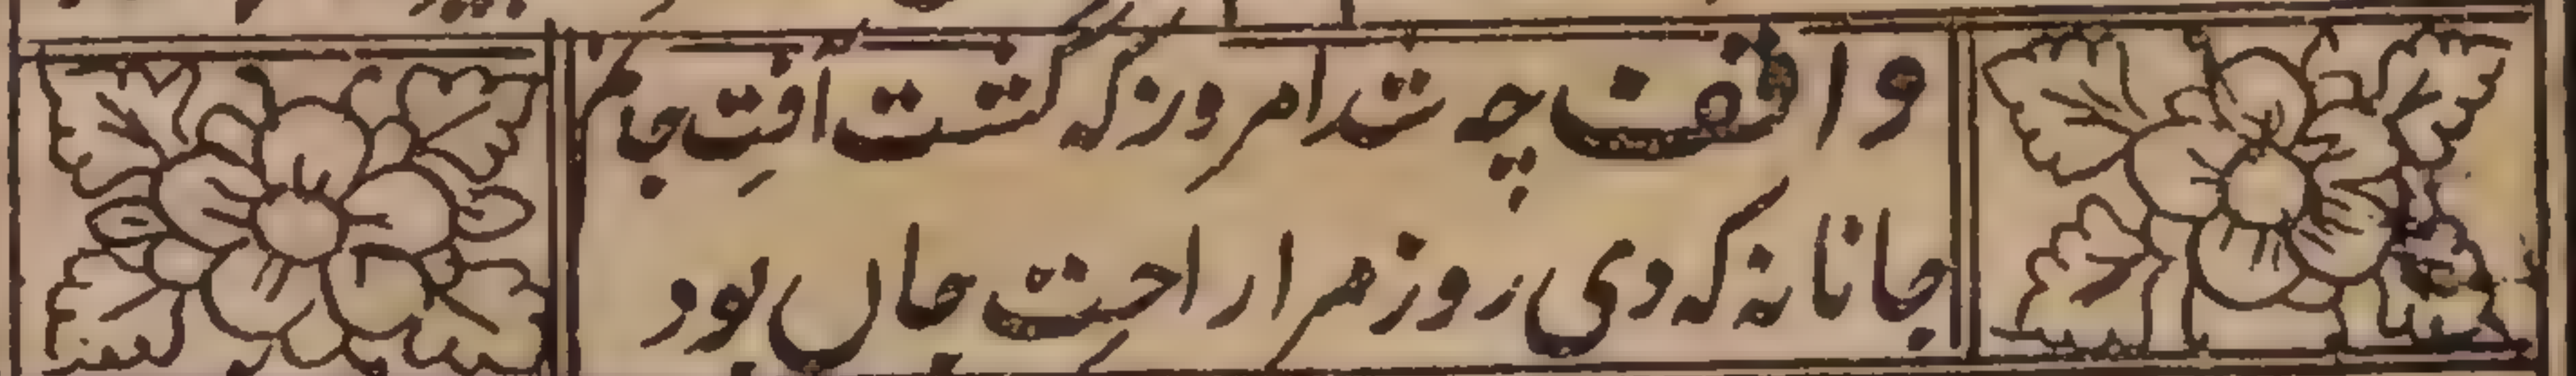 واقف چه شد امروز که گشت آفتِ جانم
جانانه که دی روز مرا راحتِ جاں بود